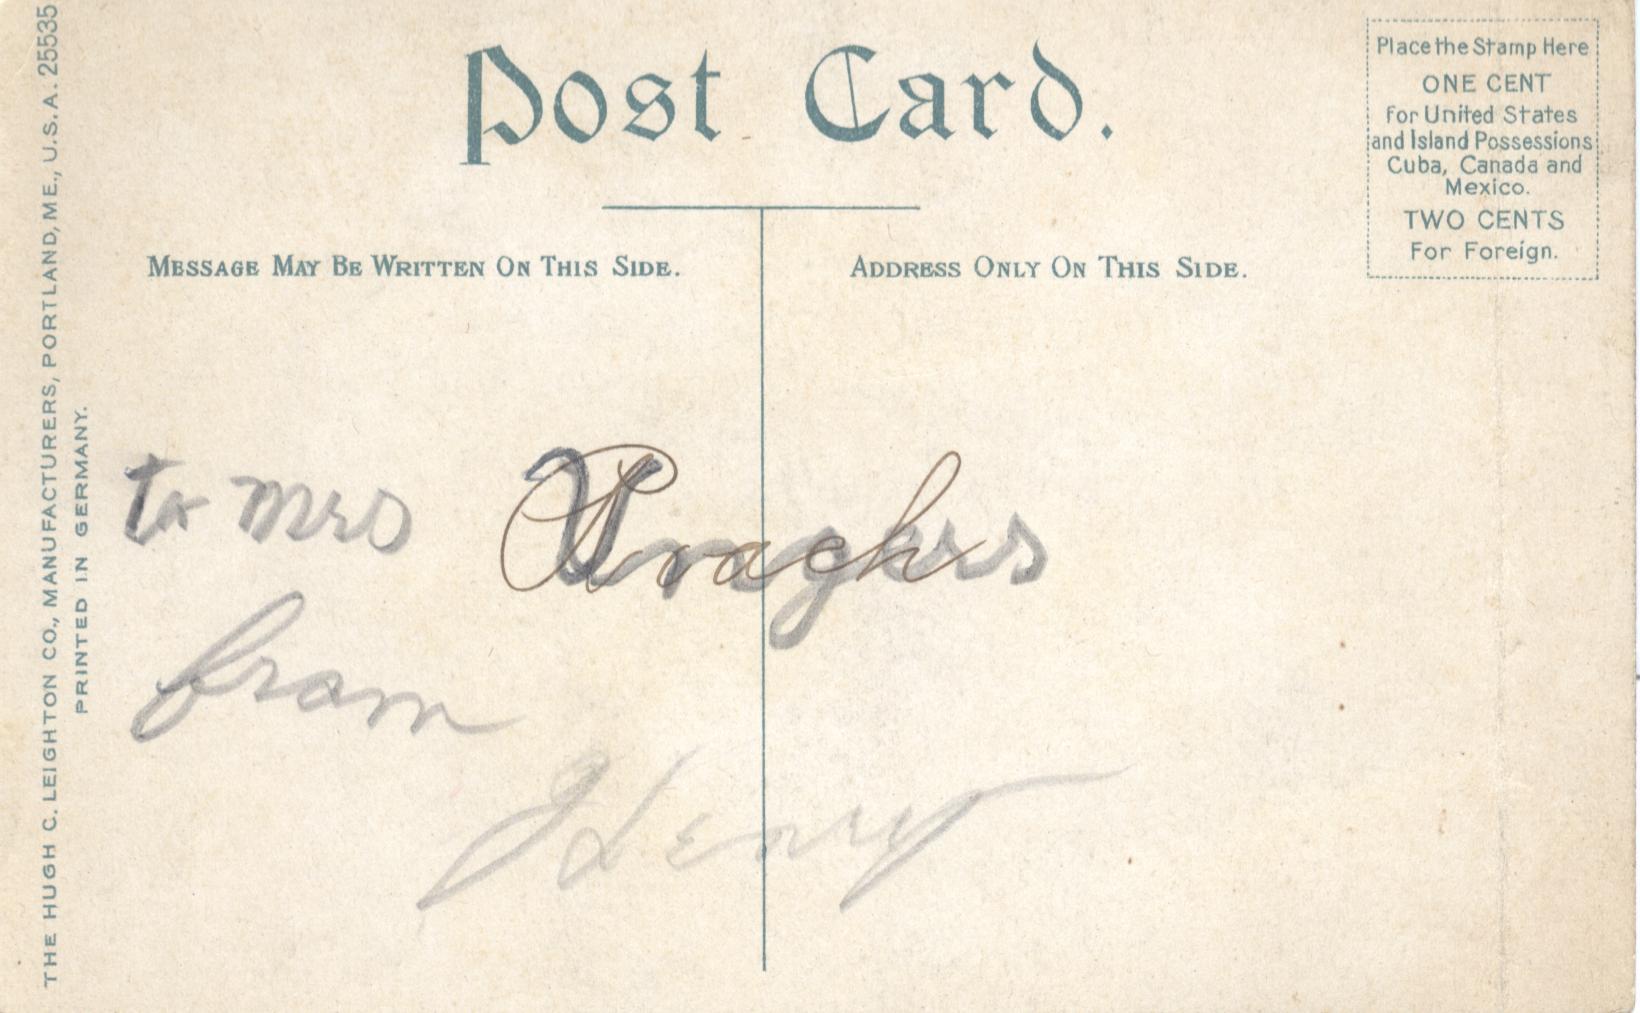 Post Card.
Place the Stamp Here
ONE CENT
for United States
and Island Possessions
Cuba, Canada and
Mexico.
TWO CENTS
For Foreign.
MESSAGE MAY BE WRITTEN ON THIS SIDE.
ADDRESS ONLY ON THIS SIDE.
to Mrs
from
Henry
THE HUGH C. LEIGHTON CO., MANUFACTURERS, PORTLAND, ME., U.S.A. 25535
PRINTED IN GERMANY.